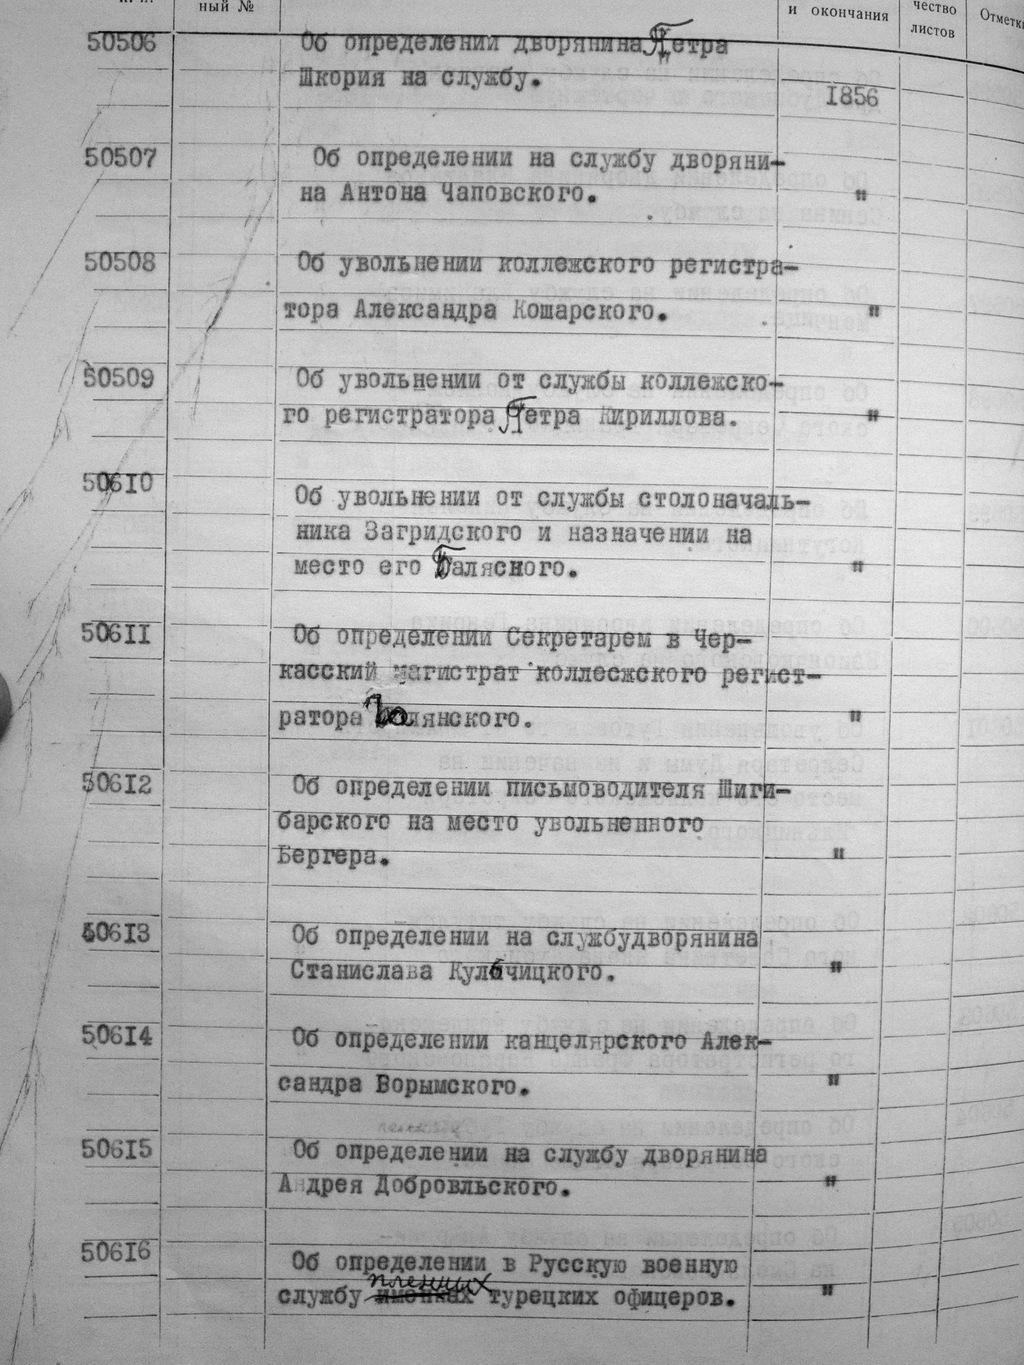 ный №
и окончания
чество
листов
Отметки
50506 Об определении дворянина Петра
Шкория на службу.
1856
50507 Об определении на службу дворяни-
на Антона Чаповского. "
50508 Об увольнении коллежского регистра-
тора Александра Кошарского. "
50509 Об увольнении от службы коллежско-
го регистратора Петра Кириллова. "
50610
Об увольнении от службы столоначаль-
ника Загридского и назначении на
место его Балясного. "
50611 Об определении Секретарем в Чер-
касский магистрат коллесжского регист-
ратора "
50612 Об определении письмоводителя Шиги-
барского на место увольненного
Бергера. "
50613 Об определении на службудворянина
Станислава "
50614 Об определении канцелярского Алек-
сандра Ворымского. "
50615 Об определении на службу дворянина
Андрея Добровльского. "
50616 Об определении в Русскую военную
пленных
службу турецких офицеров. "